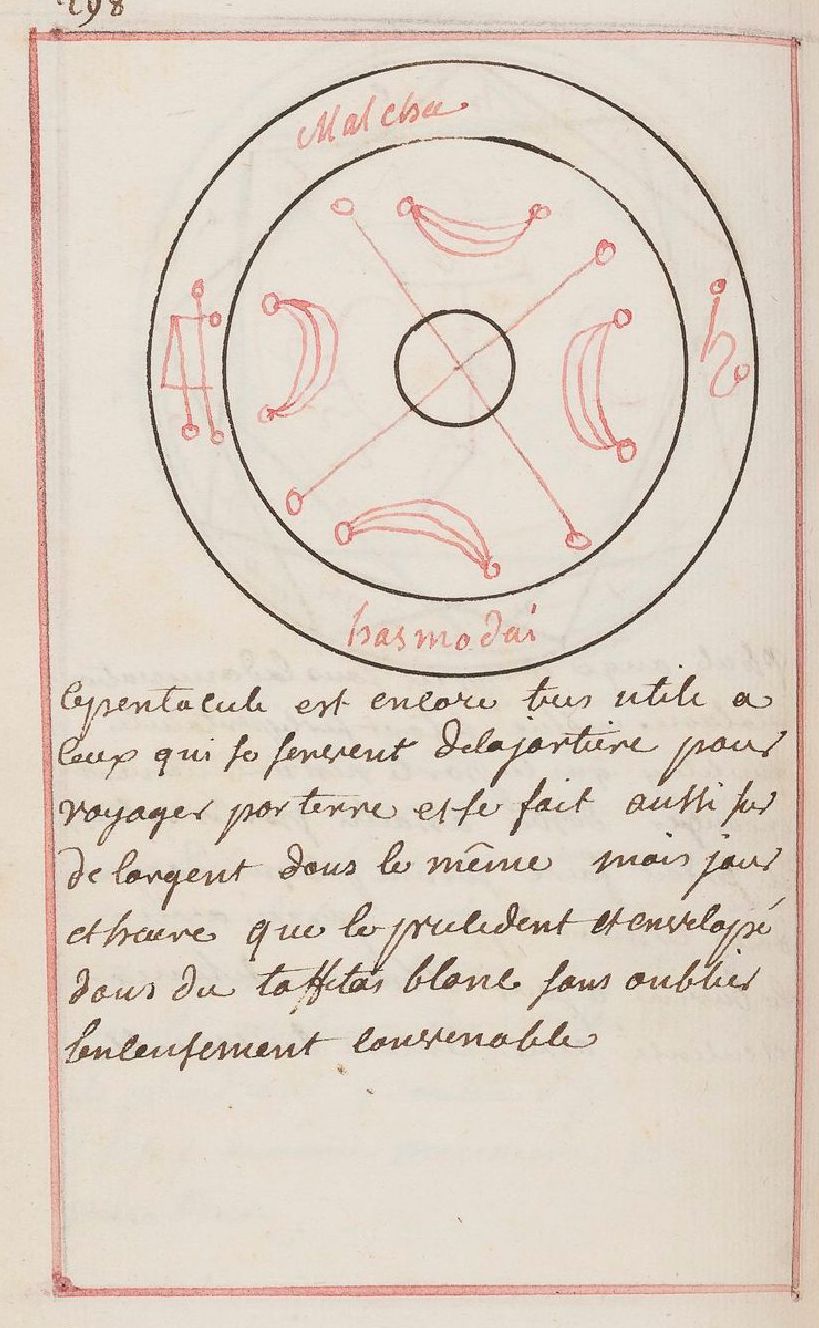 198
Malcha
hasmodai
Cepentacule est encore tres utile a
Ceux qui se servent delajartiere pour
voyager par terre etse fait aussi sur
de largent dans le même mois jour
et heure que le precedent et envelopé
dans du taffetas blanc sans oublier
lencensement convenable